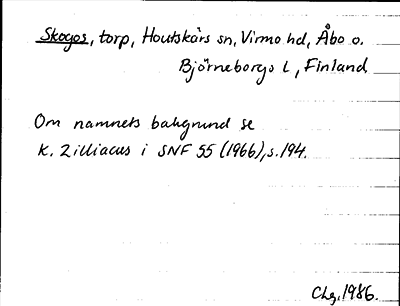 Skogos, torp, Houtskärs sn, Virmo hd, Åbo o.
Björneborgs L, Finland
Om namnets bakgrund se
K. Zilliacus i SNF 55 (1966), s. 194.
Chg. 1986.